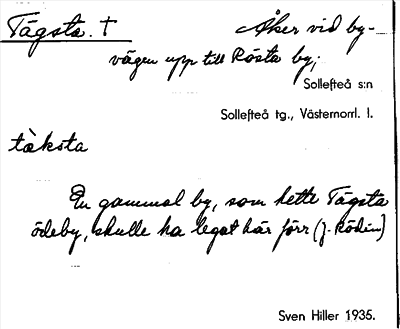 Tägsta. † Åker vid by-
vägen upp till Rösta by;
Sollefteå s:n
Sollefteå tg., Västernorrl. l.
tàksta
En gammal by, som hette Tägsta
ödeby, skulle ha legat här förr (J. Rödin)
Sven Hiller 1935.